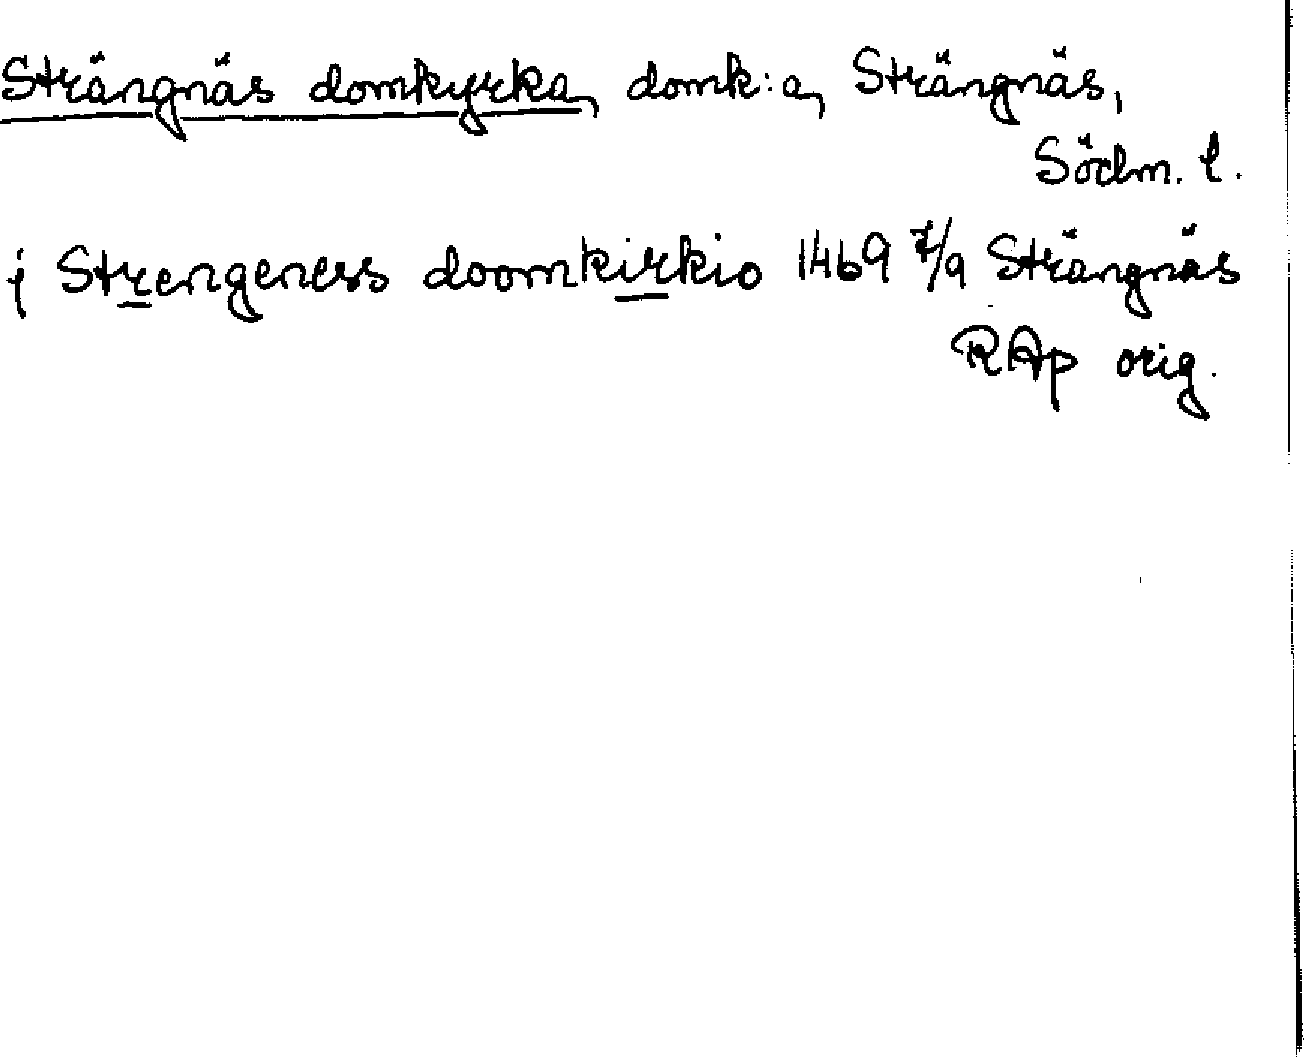 Strängnäs domkyrka, domk:a, Strängnäs,
Södm. l.
j Strengeness doomkirkio 1469 7/9 Strängnäs
RAp orig.